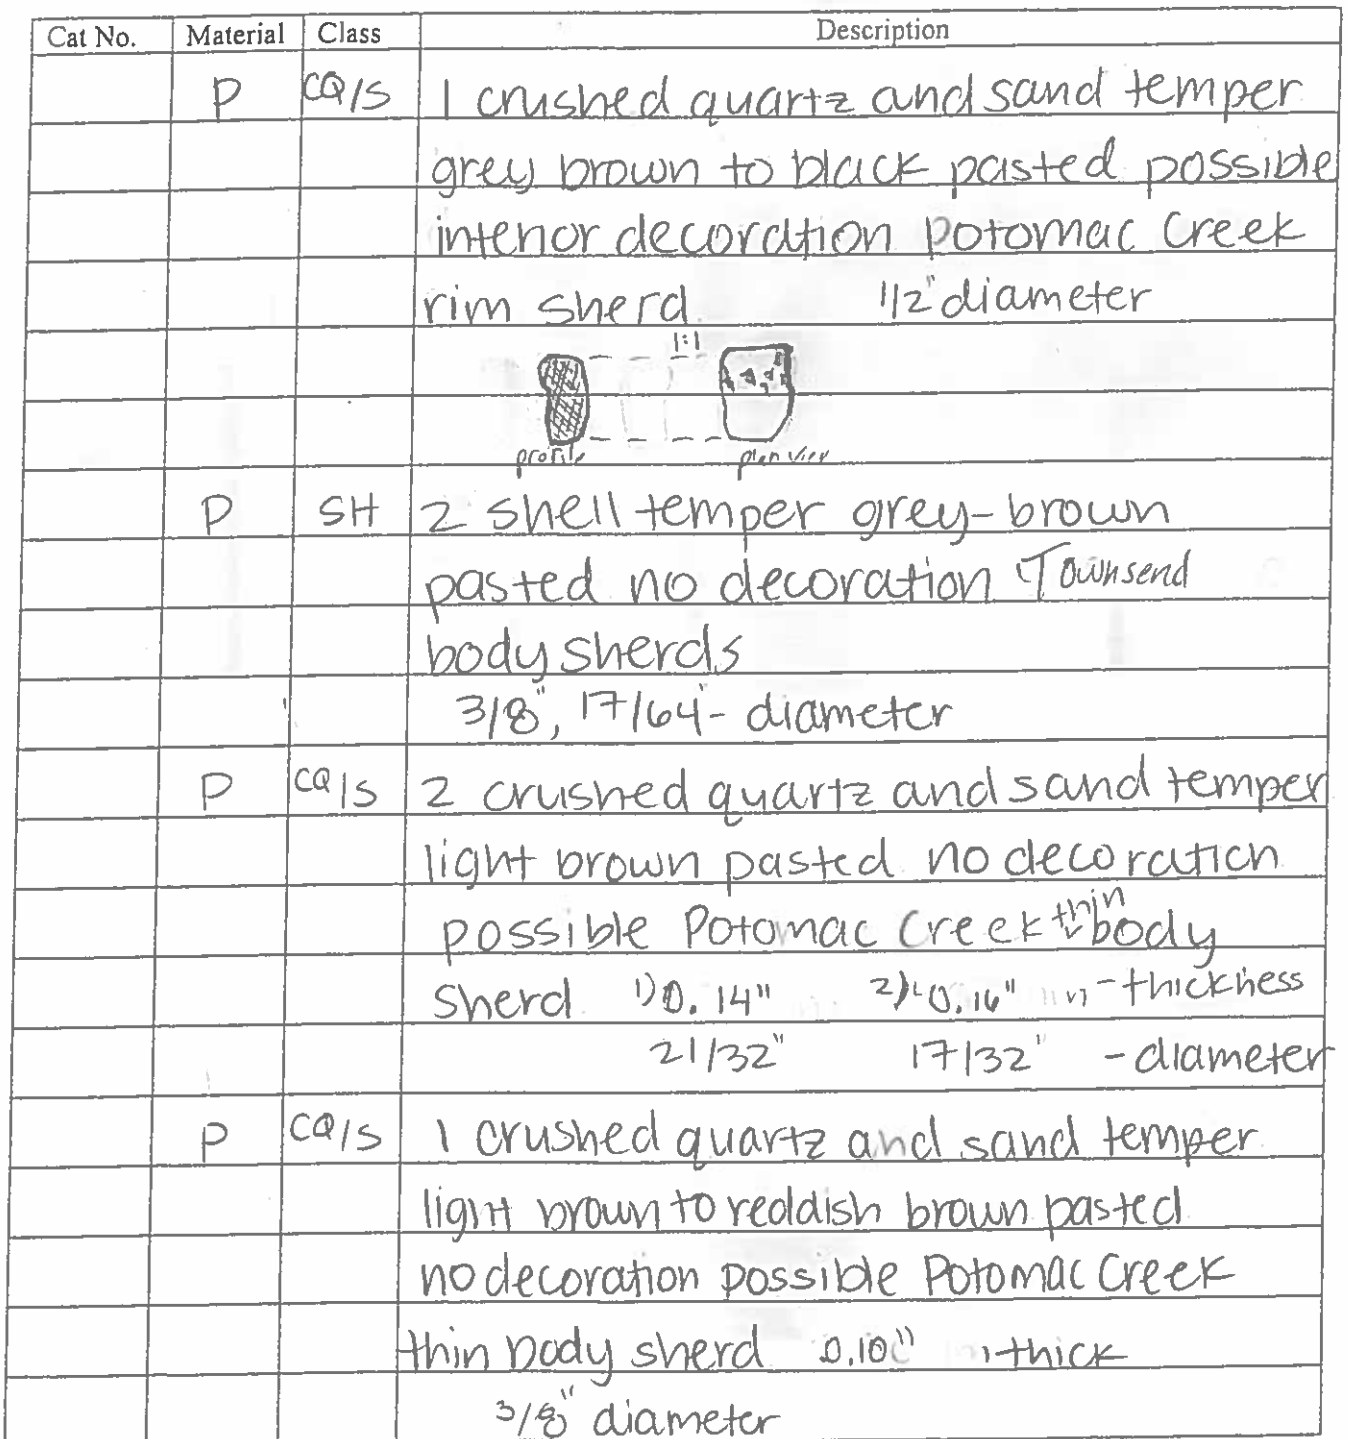 Cat No. Material Class Description
P CQ/S 1 crushed quartz and sand temper
grey brown to black pasted possible
interior decoration Potomac Creek
rim sherd 1/2" diameter
1:1
profile plan view
P SH 2 shell temper grey-brown
pasted no decoration Townsend
body sherds
3/8", 17/64" - diameter
P CQ/S 2 crushed quartz and sand temper
light brown pasted no decoration
possible Potomac Creek thin body
sherd 1) 0.14" 2) 0.16" - thickness
21/32" 17/32" - diameter
P CQ/S 1 crushed quartz and sand temper
light brown to reddish brown pasted
no decoration possible Potomac Creek
thin body sherd 0.10" thick
3/8" diameter